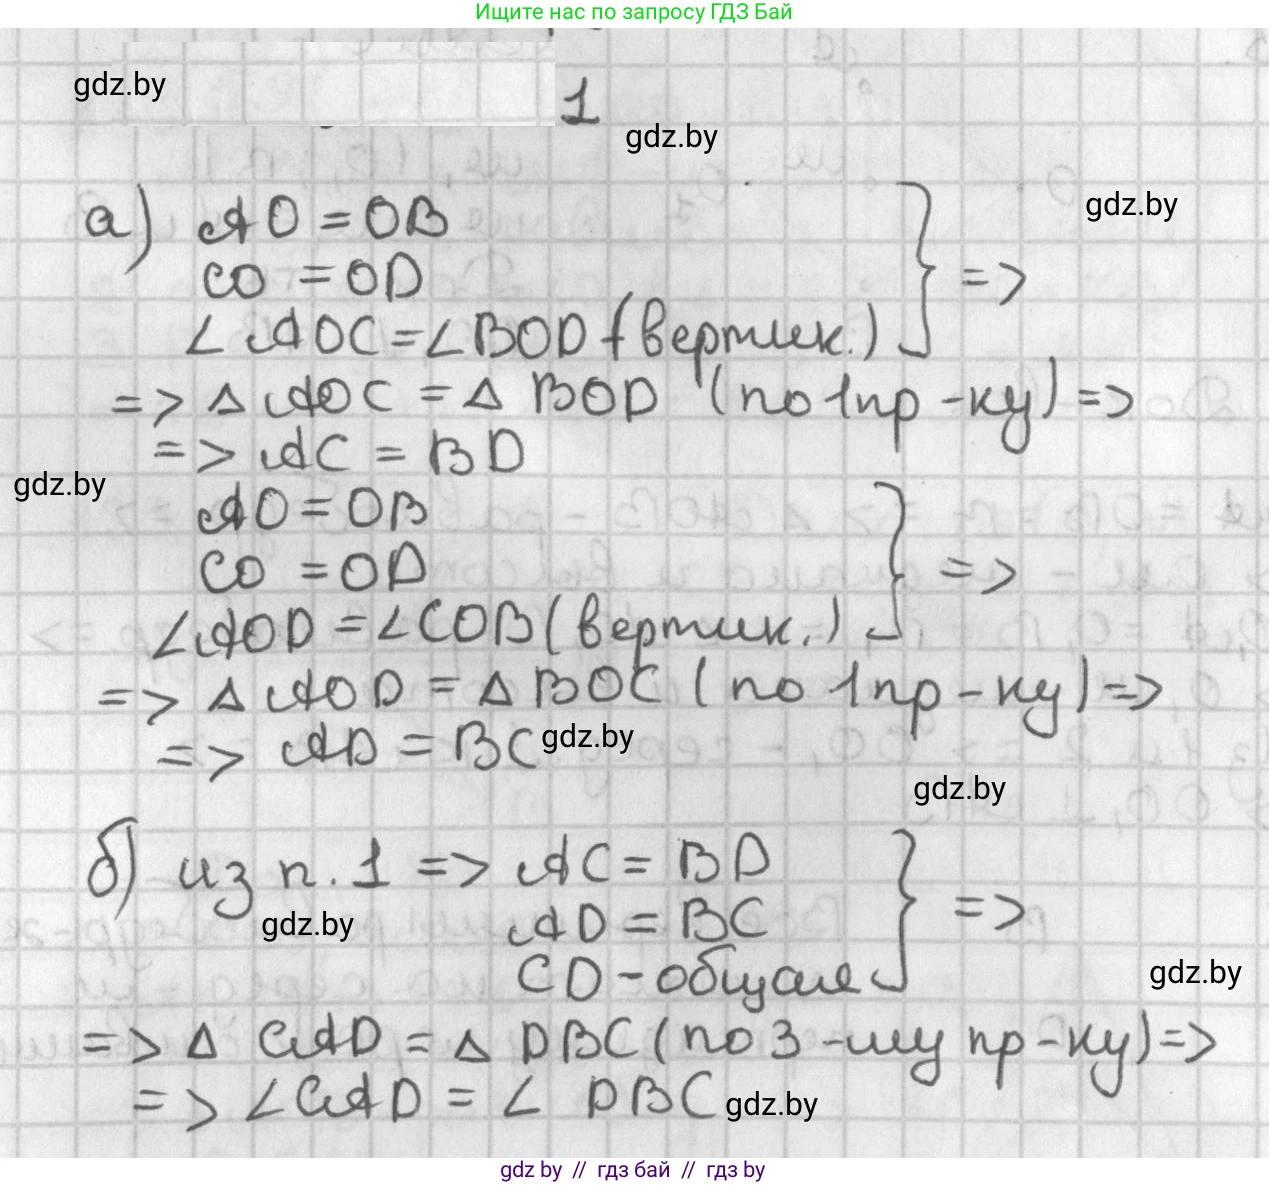 Ищите нас по запросу ГДЗ Бай
gdz.by
1
gdz.by
а) AO = OB
gdz.by
CO = OD
=>
∠AOC = ∠BOD (вертик.)
=> △ AOC = △ BOD (по 1 пр-ку) =>
=> AC = BD
gdz.by
AO = OB
CO = OD
=>
∠AOD = ∠COB (вертик.)
=> △ AOD = △ BOC (по 1 пр-ку) =>
=> AD = BC
gdz.by
gdz.by
б) из п. 1 => AC = BD
AD = BC
=>
gdz.by
CD - общая
gdz.by
=> △ CAD = △ DBC (по 3-му пр-ку) =>
=> ∠CAD = ∠ DBC
gdz.by
gdz by // гдз бай // гдз by